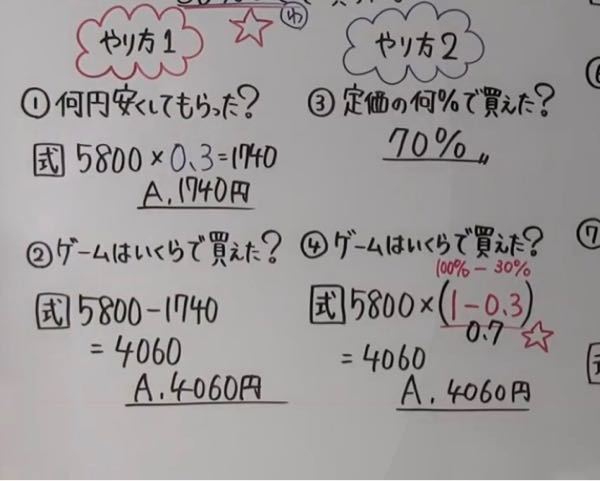 やり方1
①何円安くしてもらった?
式 5800×0.3=1740
A.1740円
②ゲームはいくらで買えた?
式 5800-1740
=4060
A.4060円
やり方2
③定価の何%で買えた?
70%〃
④ゲームはいくらで買えた?
100%-30%
式 5800×(1-0.3)
0.7
=4060
A.4060円
⑦